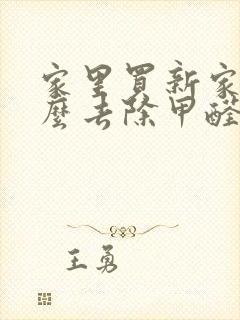 家里買新家
麼去除甲醛
王勇